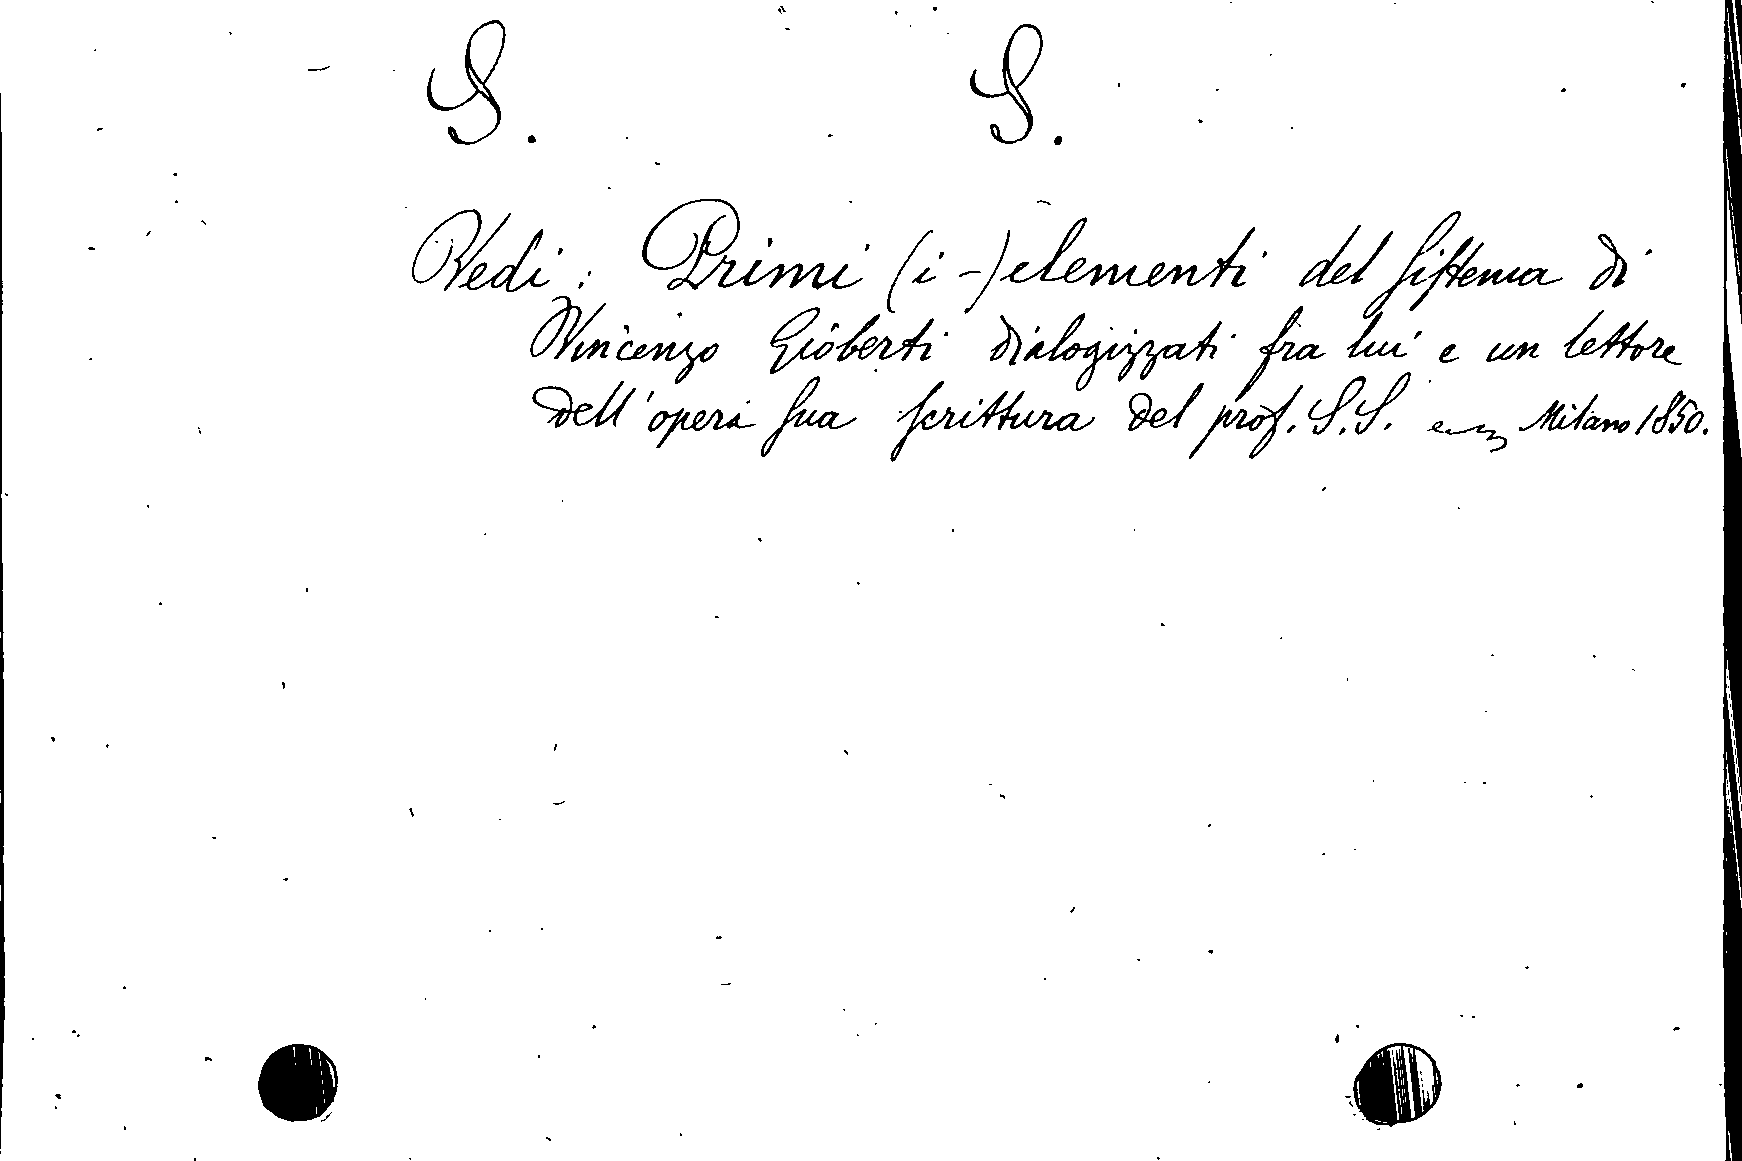 S. S.
Vedi: Primi (i-) elementi del sistema di
Vincenzo Gioberti dialogizzati fra lui e un lettore
dell'opera sua scrittura del prof. S.S. Milano 1850.